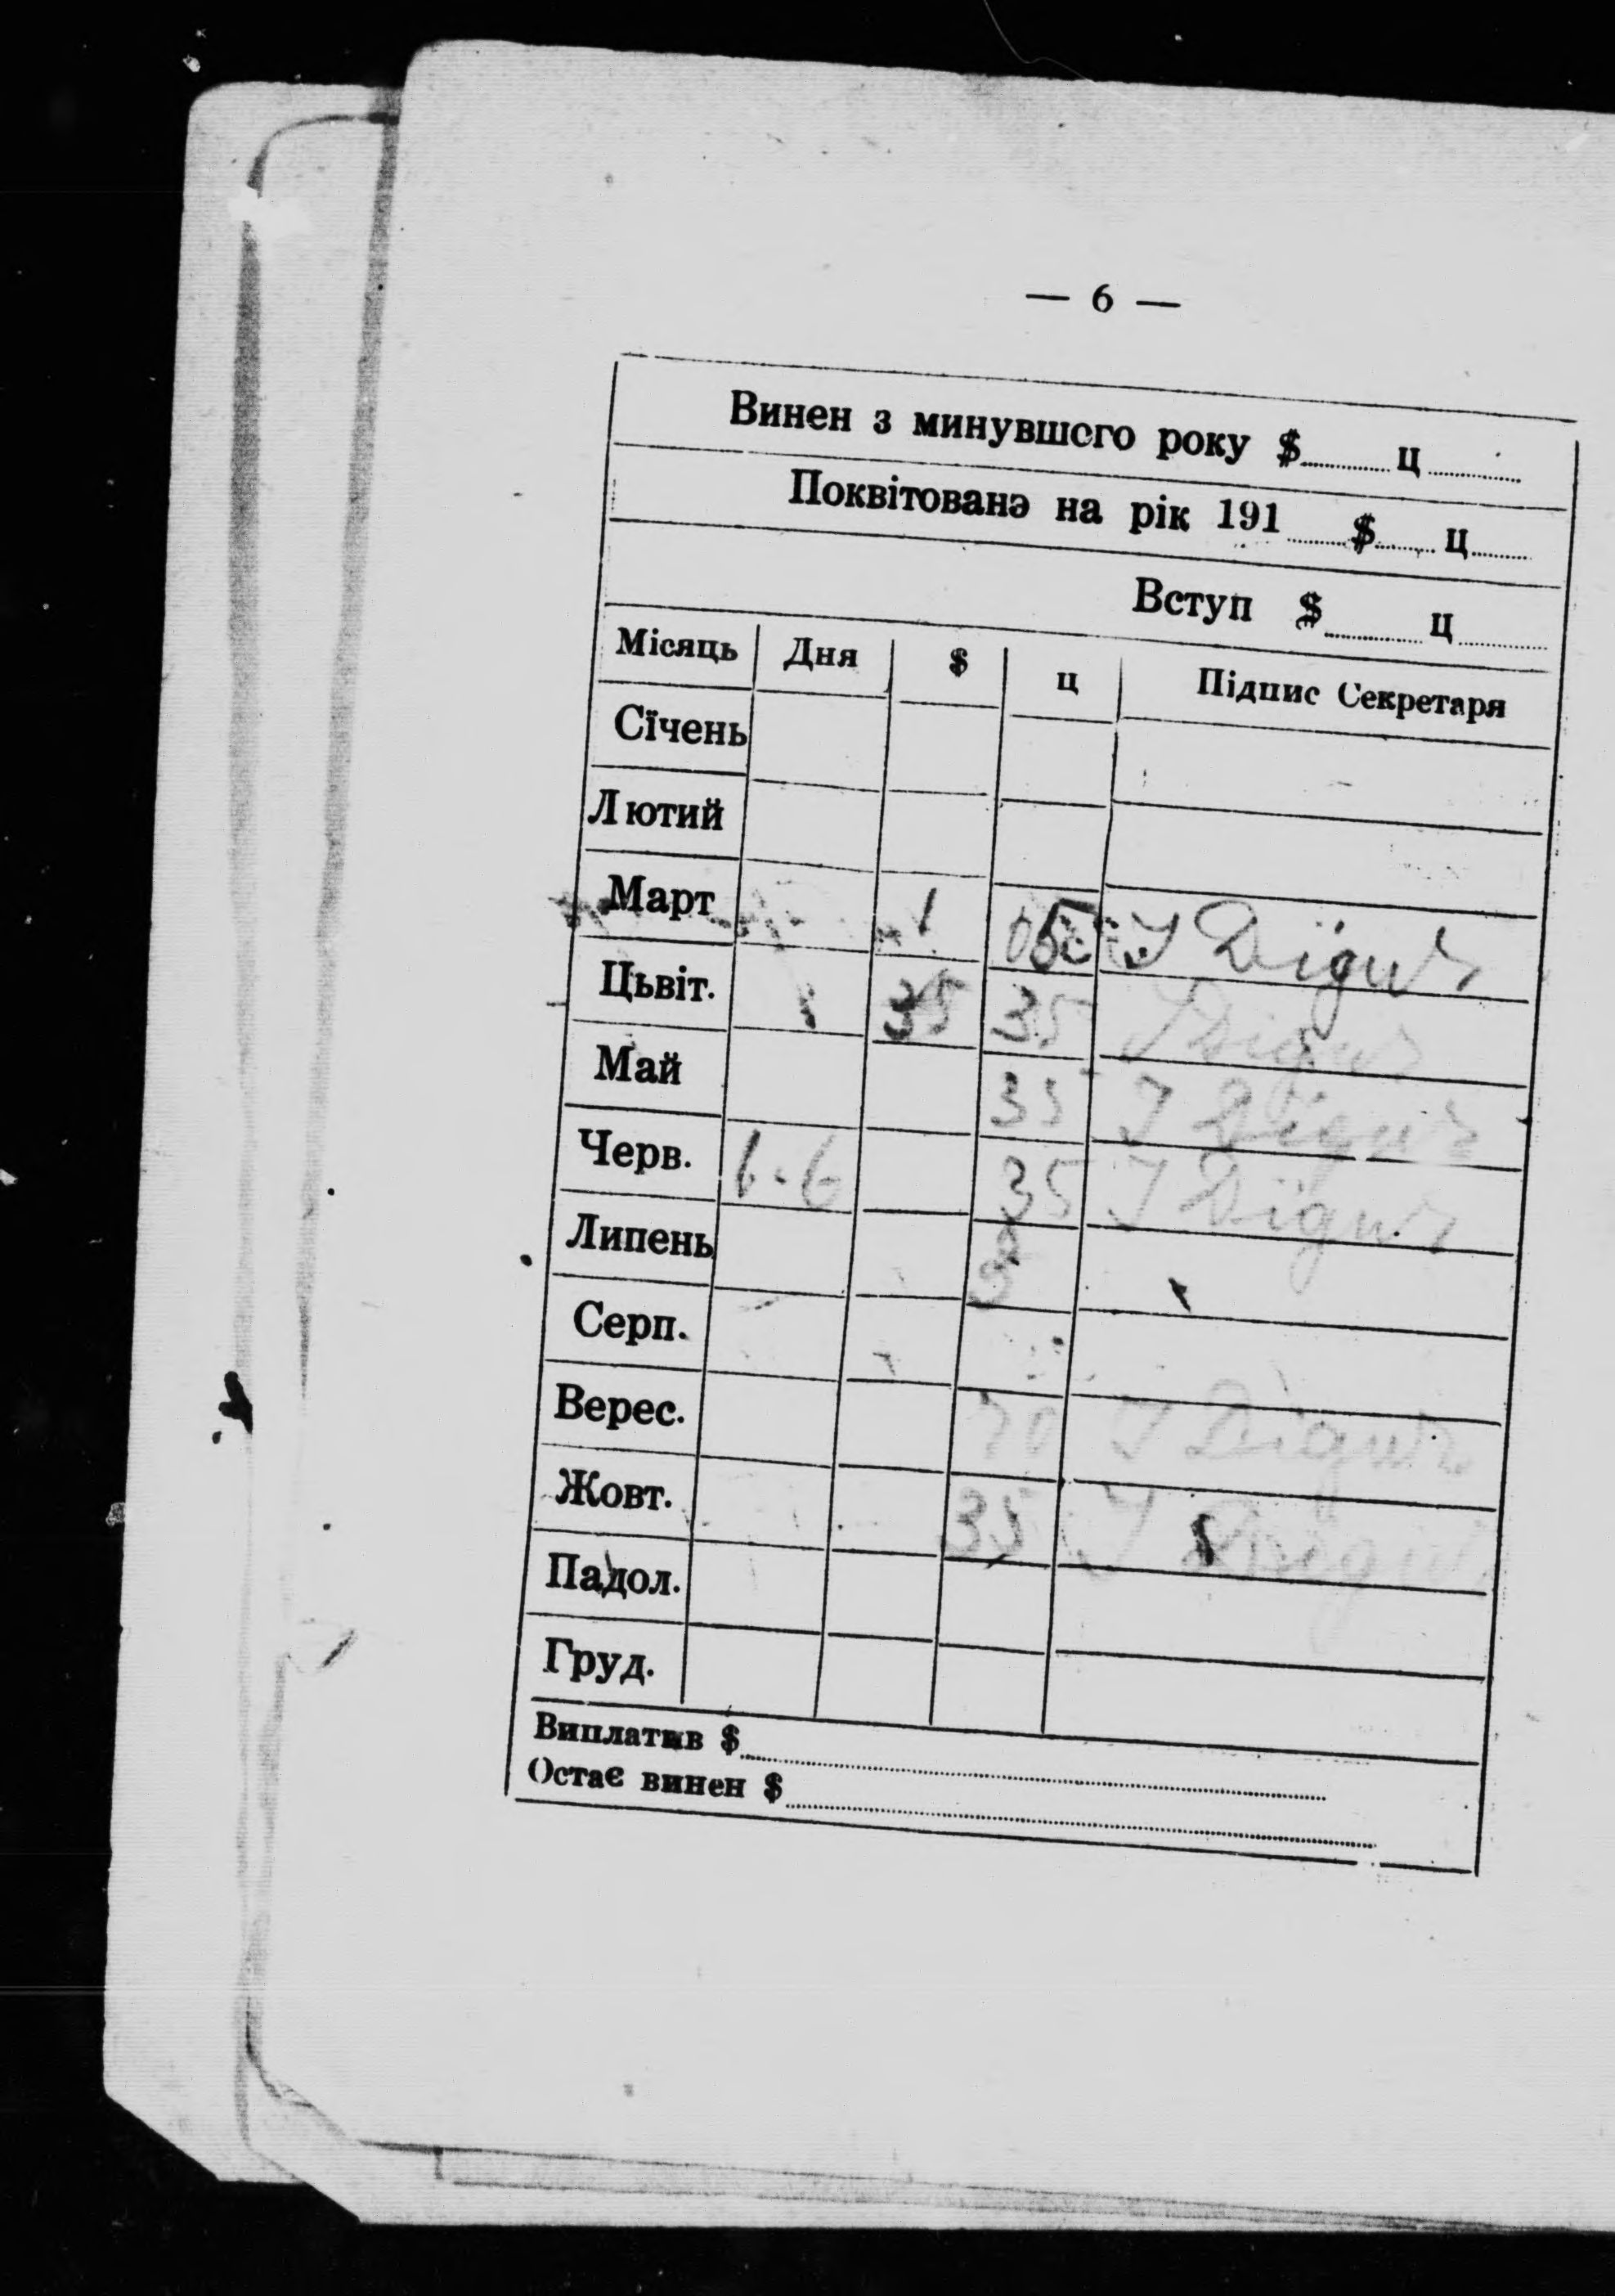 — 6 —
Винен з минувшого року $ ц
Поквітованэ на рік 191 $ ц
Вступ $ ц
Місяць Дня $ ц Підпис Секретаря
Січень
Лютий
Март 1 05
Цьвіт. 35 35
Май 35
Черв. 6-6 35
Липень
Серп.
Верес. 70
Жовт. 35
Падол.
Груд.
Виплатив $
Остає винен $